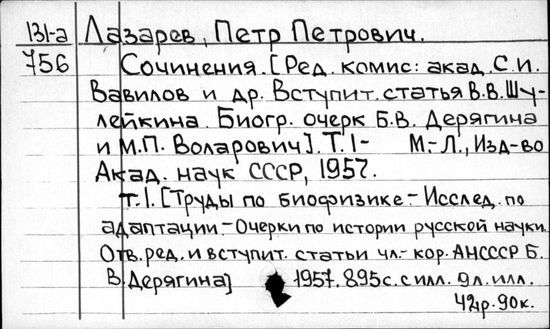 131-а Лазарев, Петр Петрович.
756 Сочинения. [Ред. комис: акад. С.И.
Вавилов и др. Вступит. статья В.В. Шу-
лейкина. Биогр. очерк Б.В. Дерягина
и М.П. Воларович]. Т.1- М.-Л., Изд-во
Акад. наук СССР, 1957.
т.1. [Труды по биофизике.- Исслед. по
адаптации.- Очерки по истории русской науки.
Отв. ред. и вступит. статьи чл.-кор. АНСССР Б.
В. Дерягина] 1957. 895с. с илл. 9л. илл.
42р. 90к.